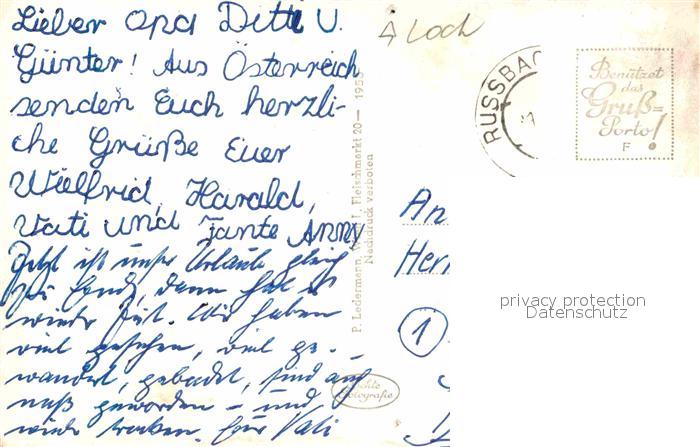 Lieber Opa Ditti u.
Günter! Aus Österreich
senden Euch herzli-
che Grüße Euer
Wielfrid, Harald,
Vati und Tante Anny
Jetzt ist unser Urlaub gleich
zu Ende, dann hat es
wieder Zeit. Wir haben
viel gesehen, viel ge-
wandert, gebadet, sind auch
naß geworden - und
wieder trocken. Euer Vati
Loch
P. Ledermann, Wien I, Fleischmarkt 20— 195
Nachdruck verboten
Echte
Fotografie
RUSSBAC
Benützet
das
Gruß=
Porto!
F
An
Herr
1
privacy protection
Datenschutz